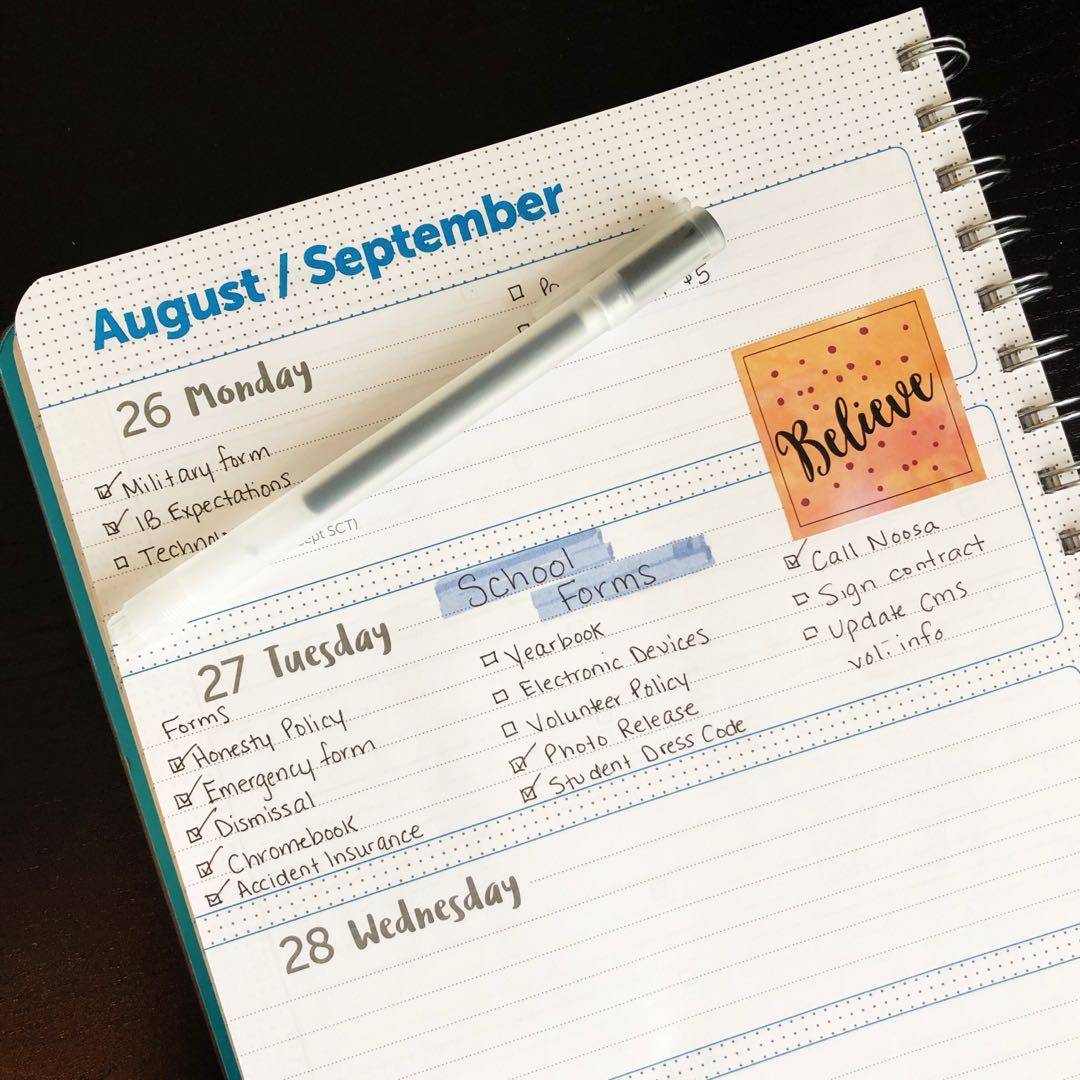 August / September
26 Monday
Military form
IB Expectations
$5
27 Tuesday
School
Forms
Forms
Honesty Policy
Emergency form
Dismissal
Chromebook
Accident Insurance
Yearbook
Electronic Devices
Volunteer Policy
Photo Release
Student Dress Code
Believe
Call Noosa
Sign contract
Update cms
vol. info
28 Wednesday